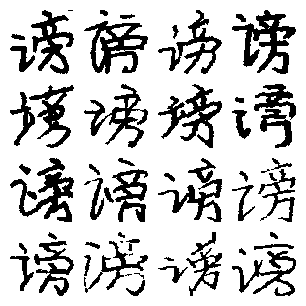 谤谤谤谤
谤谤谤谤
谤谤谤谤
谤谤谤谤